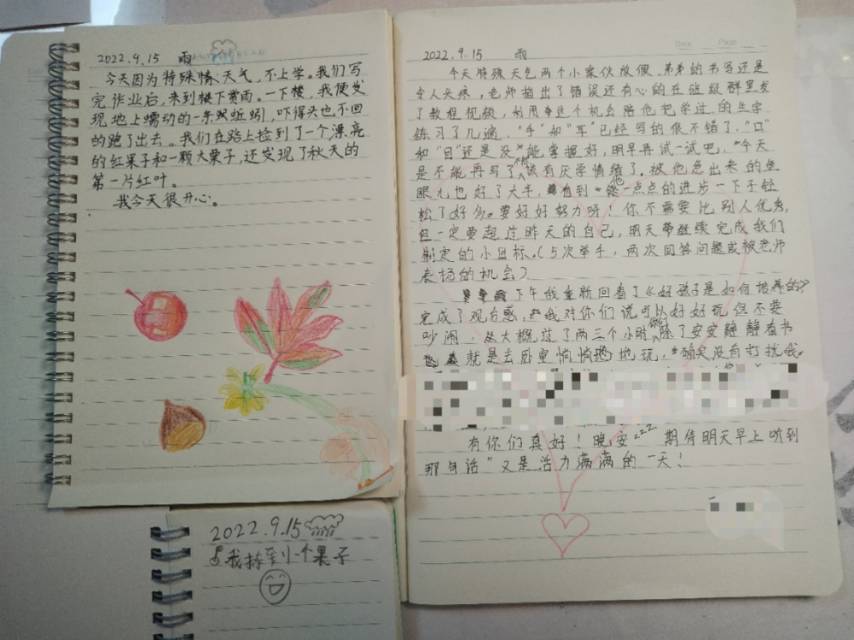 2022.9.15 雨
今天因为特殊情天气，不上学。我们写
完作业后，来到楼下赏雨。一下楼，我便发
现地上蠕动的一条蚯蚓，吓得头也不回
的跑了出去。我们在路上捡到了一个漂亮
的红果子和一颗大栗子，还发现了秋天的
第一片红叶。
我今天很开心。
2022.9.15
我捡到小个果子
2022.9.15 雨
今天特殊天气两个小家伙放假，弟弟的书写还是
令人头疼，老师指出了错误还有心的在班级群里发
了教程视频，利用这个机会陪他把学过的生字
练习了几遍，"手"如"耳"已经写的很不错了，"口"
和"目"还是没能掌握好，明早再试一试吧，今天
是不能再写了，该有厌学情绪了。被他急出来的鱼
眼儿也好了大半，看到他一点点的进步一下子轻
松了好多。要好好努力呀！你不需要比别人优秀，
但一定要超过昨天的自己，明天继续完成我们
制定的小目标。(5次举手，两次回答问题或被老师
表扬的机会)
下午我重新回看了《好孩子是如何培养的》
完成了观后感，我对你们说可以好好玩但不要
吵闹，大概过了两三个小时你们除了安安静静看书
就是去卧室悄悄地玩，确实没有打扰我。
有你们真好！晚安zzz 期待明天早上听到
那句话"又是活力满满的一天！